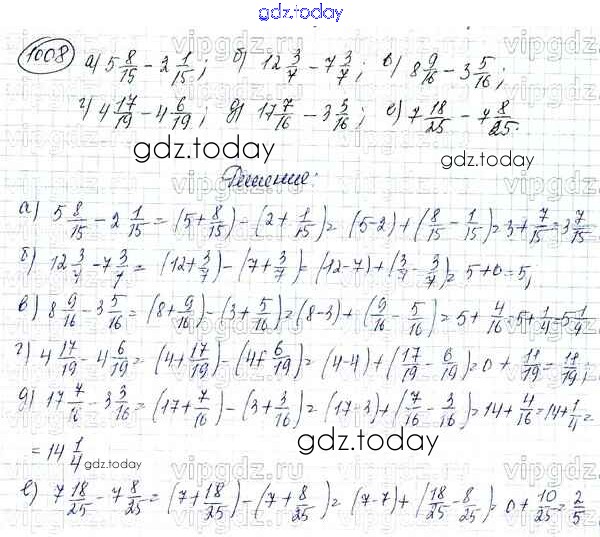 gdz.today
1008 а) 5 8/15 − 2 1/15; б) 12 3/7 − 7 3/7; в) 8 9/16 − 3 5/16;
г) 4 17/19 − 4 6/19; д) 17 7/16 − 3 3/16; е) 7 18/25 − 7 8/25.
gdz.today
Решение:
а) 5 8/15 − 2 1/15 = (5 + 8/15) − (2 + 1/15) = (5−2) + (8/15 − 1/15) = 3 + 7/15 = 3 7/15
б) 12 3/7 − 7 3/7 = (12 + 3/7) − (7 + 3/7) = (12−7) + (3/7 − 3/7) = 5 + 0 = 5;
в) 8 9/16 − 3 5/16 = (8 + 9/16) − (3 + 5/16) = (8−3) + (9/16 − 5/16) = 5 + 4/16 = 5 + 1/4 = 5 1/4
г) 4 17/19 − 4 6/19 = (4 + 17/19) − (4 + 6/19) = (4−4) + (17/19 − 6/19) = 0 + 11/19 = 11/19;
д) 17 7/16 − 3 3/16 = (17 + 7/16) − (3 + 3/16) = (17−3) + (7/16 − 3/16) = 14 + 4/16 = 14 + 1/4 =
= 14 1/4
gdz.today
gdz.today
е) 7 18/25 − 7 8/25 = (7 + 18/25) − (7 + 8/25) = (7−7) + (18/25 − 8/25) = 0 + 10/25 = 2/5